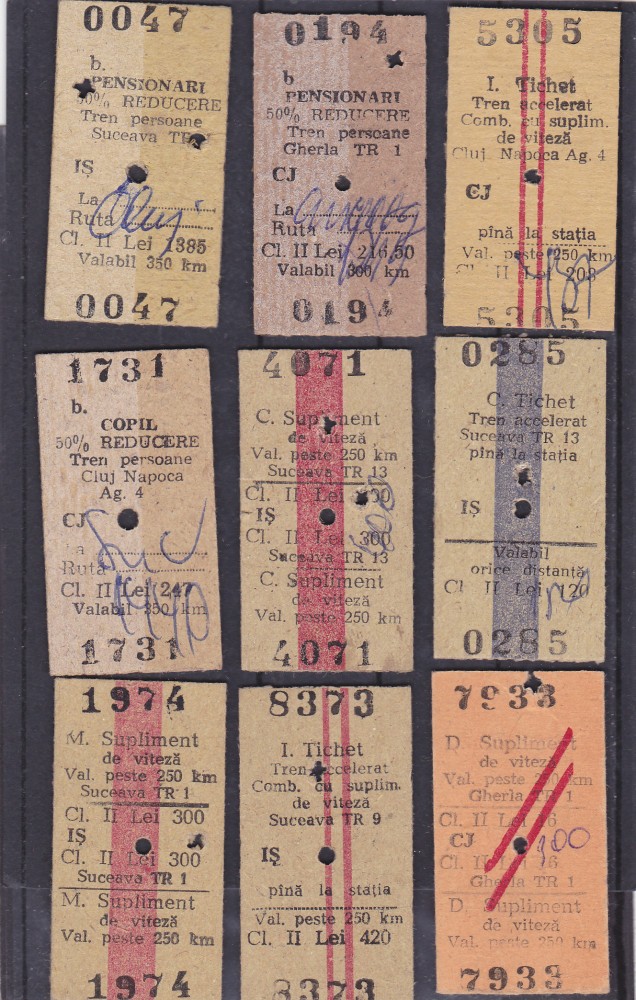 0047
b.
PENSIONARI
50% REDUCERE
Tren persoane
Suceava TR
IȘ
La
Cluj
Ruta
Cl. II Lei 1385
Valabil 350 km
0047
0194
b
PENSIONARI
50% REDUCERE
Tren persoane
Gherla TR 1
CJ
La
Ruta
Cl. II Lei 216,50
Valabil 300 km
0194
5305
I. Tichet
Tren accelerat
Comb. cu suplim.
de viteză
Cluj Napoca Ag. 4
CJ
pînă la stația
Val. peste 250 km
Cl. II Lei 205
5305
1731
b.
COPIL
50% REDUCERE
Tren persoane
Cluj Napoca
Ag. 4
CJ
La
Ruta
Cl. II Lei 247
Valabil 350 km
1731
4071
C. Supliment
de viteză
Val. peste 250 km
Suceava TR 13
Cl. II Lei 300
IȘ
Cl. II Lei 300
Suceava TR 13
C. Supliment
de viteză
Val. peste 250 km
4071
0285
C. Tichet
Tren accelerat
Suceava TR 13
pînă la stația
IȘ
Valabil
orice distanță
Cl II Lei 120
0285
1974
M. Supliment
de viteză
Val. peste 250 km
Suceava TR 1
Cl. II Lei 300
IȘ
Cl. II Lei 300
Suceava TR 1
M. Supliment
de viteză
Val. peste 250 km
1974
8373
I. Tichet
Tren accelerat
Comb. cu suplim.
de viteză
Suceava TR 9
IȘ
pînă la stația
Val. peste 250 km
Cl. II Lei 420
8373
7933
D. Supliment
de viteză
Val. peste 250 km
Gherla TR 1
Cl. II Lei 16
CJ
100
Cl. II Lei 16
Gherla TR 1
D. Supliment
de viteză
Val. peste 250 km
7933